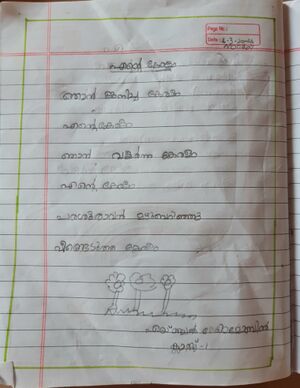 Page No.:
Date:
എന്റെ കേരളം
ഞാൻ ജനിച്ച കേരളം
എന്റെ കേരളം
ഞാൻ വളർന്ന കേരളം
എന്റെ കേരളം
പരശുരാമൻ മഴുവെറിഞ്ഞു
വീണ്ടെടുത്ത കേരളം
ക്ലാസ്സ് -1